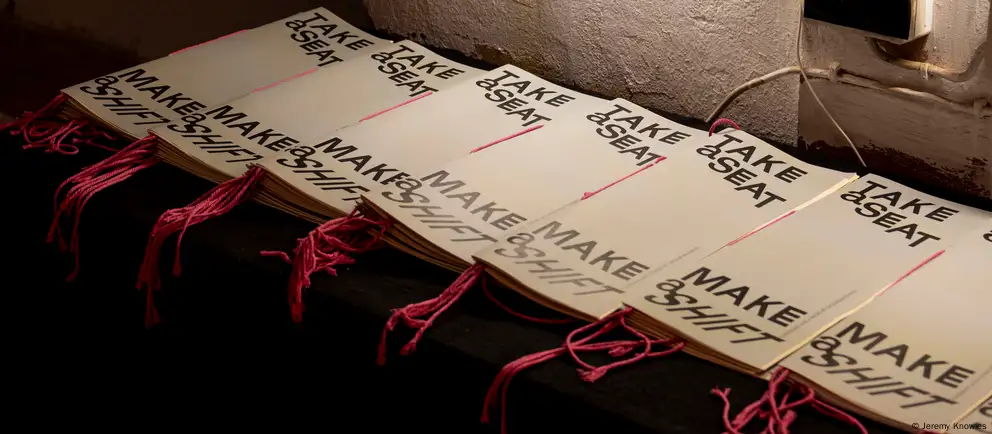 TAKE
aSEAT
MAKE
aSHIFT
TAKE
aSEAT
MAKE
aSHIFT
TAKE
aSEAT
MAKE
aSHIFT
TAKE
aSEAT
MAKE
aSHIFT
TAKE
aSEAT
MAKE
aSHIFT
TAKE
aSEAT
MAKE
aSHIFT
TAKE
aSEAT
MAKE
aSHIFT
© Jeremy Knowles